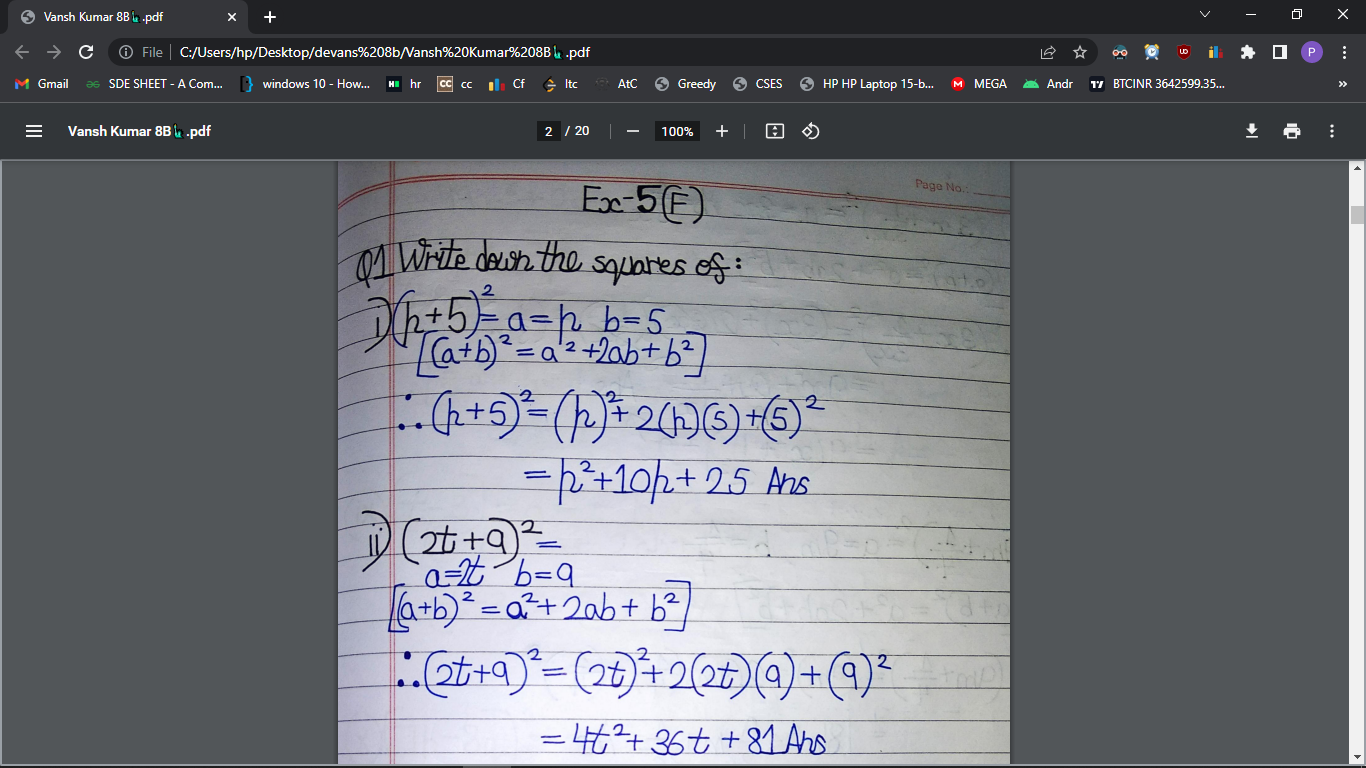 Vansh Kumar 8B .pdf
File C:/Users/hp/Desktop/devans%208b/Vansh%20Kumar%208B .pdf
Gmail SDE SHEET - A Com... windows 10 - How... H hr CC cc Cf ltc AtC Greedy CSES HP HP Laptop 15-b... M MEGA Andr 17 BTCINR 3642599.35... »
Vansh Kumar 8B .pdf 2 / 20 100%
UD P
Page No.:
Ex-5(F)
Q1 Write down the squares of:
i) (p+5)² = a=p b=5
[(a+b)² = a² +2ab+ b²]
∴ (p+5)² = (p)²+ 2(p)(5)+(5)²
= p²+10p+ 25 Ans
ii) (2t+9)² =
a=2t b=9
[(a+b)² = a²+ 2ab+ b²]
∴ (2t+9)² = (2t)²+2(2t)(9)+(9)²
= 4t²+ 36t + 81 Ans